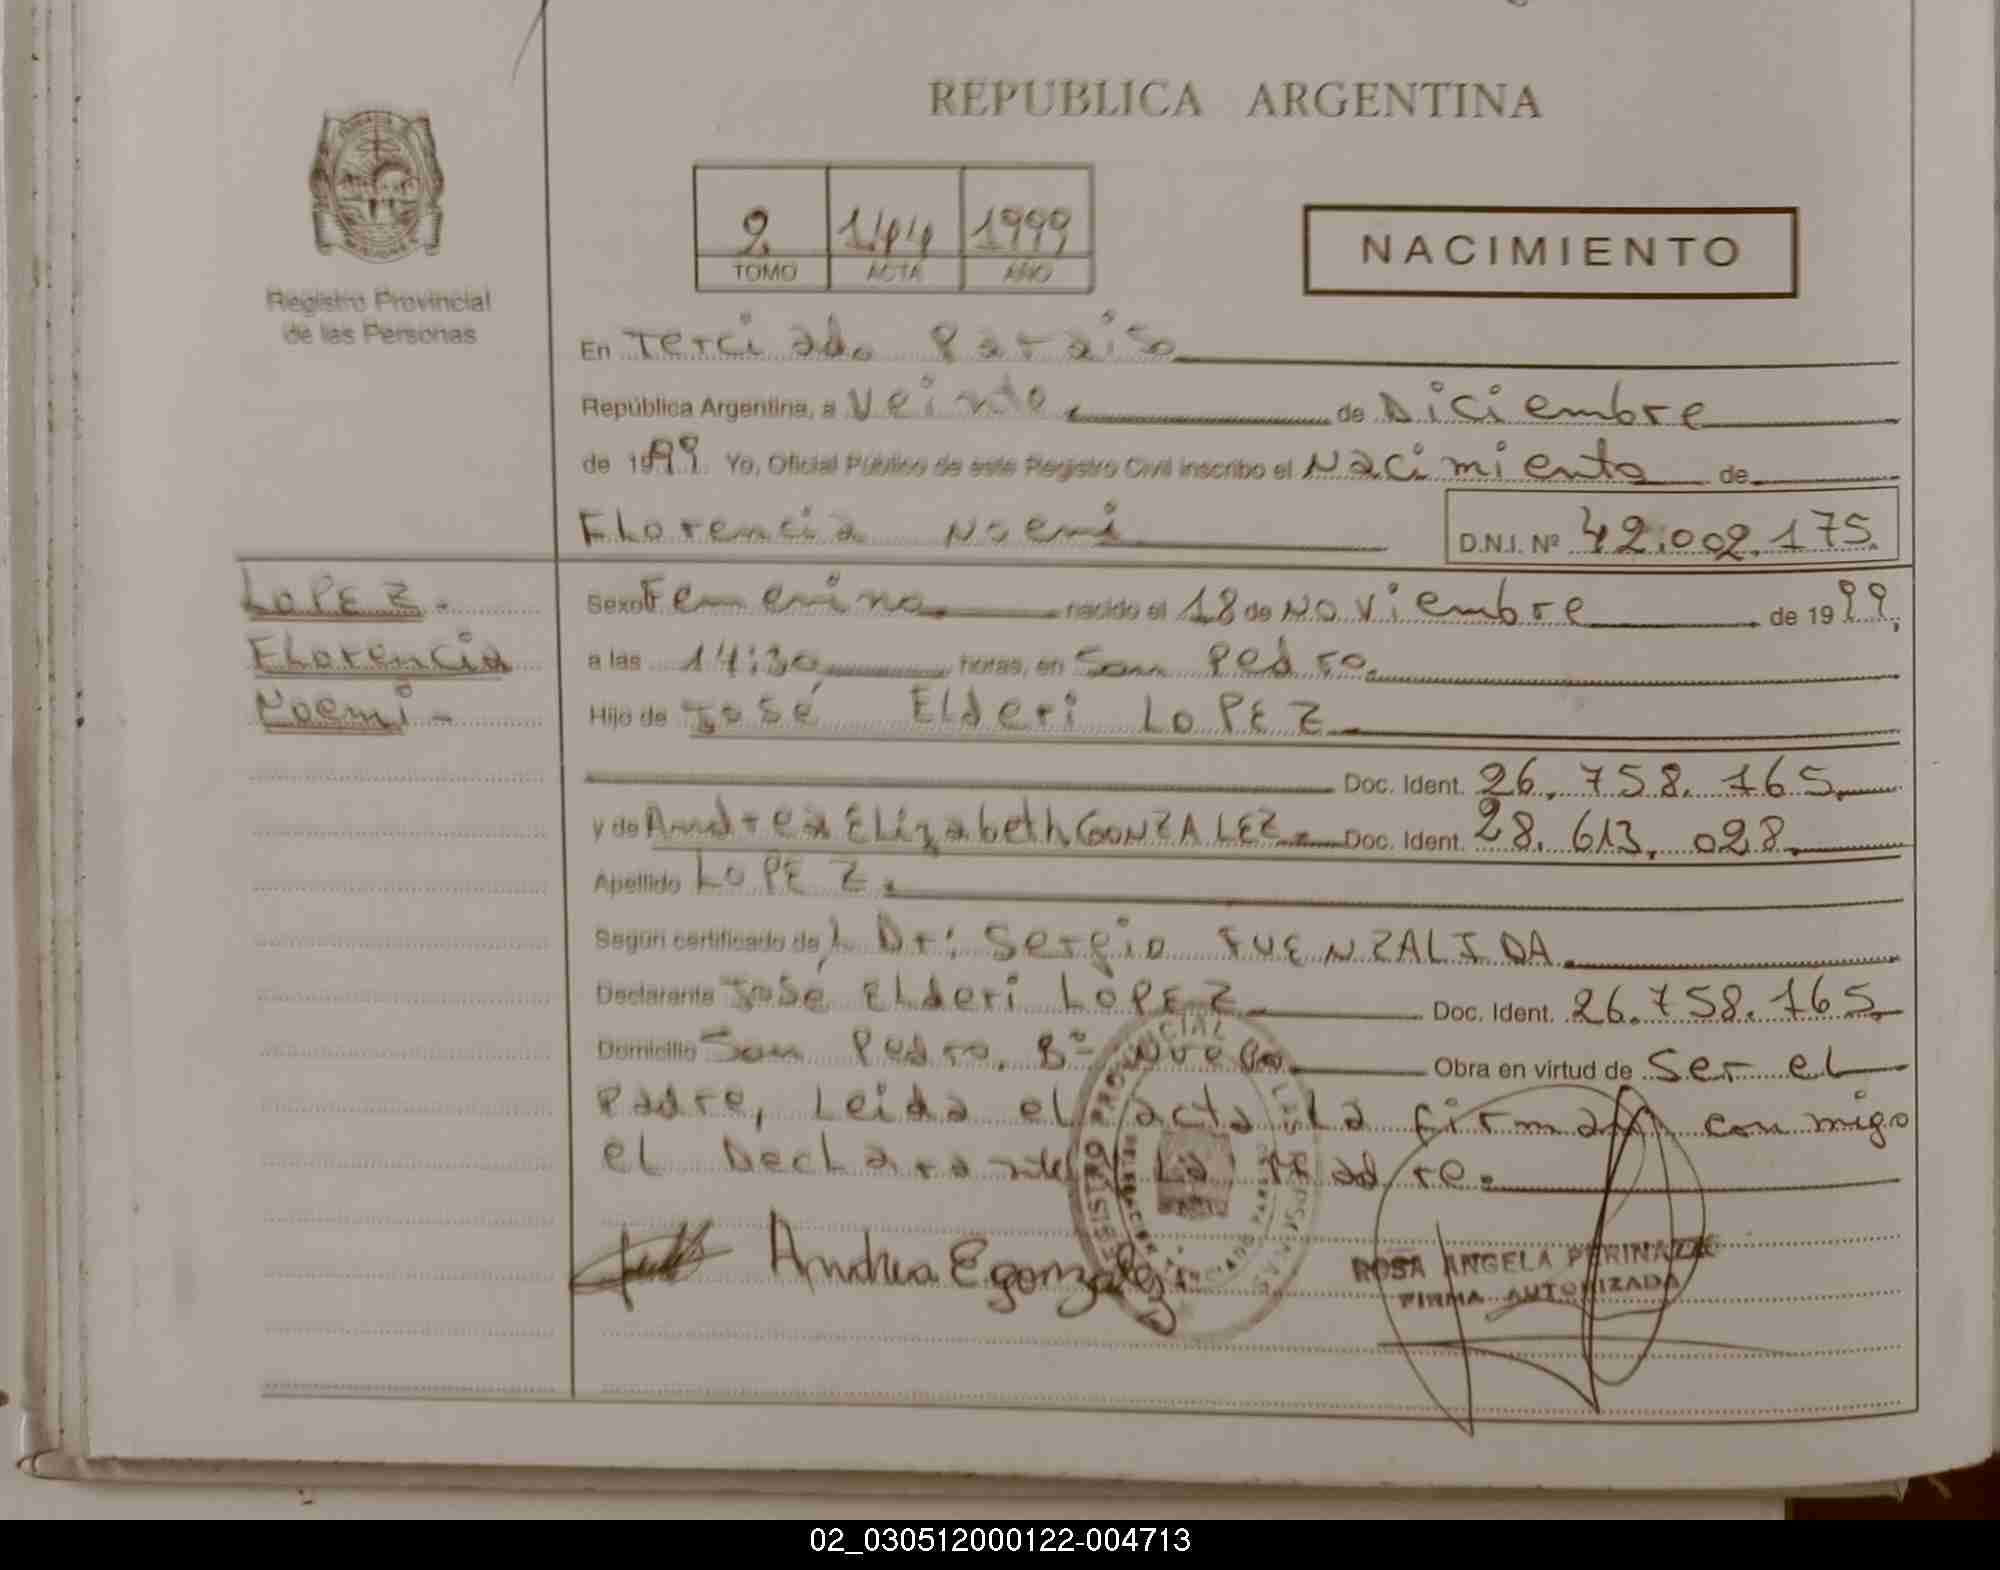 REPUBLICA ARGENTINA
2 144 1999
TOMO ACTA AÑO
NACIMIENTO
Registro Provincial
de las Personas
En Terciado Paraiso
República Argentina, a Veinte de Diciembre
de 1999. Yo, Oficial Público de este Registro Civil inscribo el Nacimiento de
Florencia Noemi
D.N.I. Nº 42.002.175.
LOPEZ.
Florencia
Noemi -
Sexo Femenino. nacido el 18 de Noviembre de 1999,
a las 14:30 horas, en San Pedro.
Hijo de José Elderi LOPEZ
Doc. Ident. 26.758.165.
y de Andrea Elizabeth GONZALEZ. Doc. Ident. 28.613.028.
Apellido LOPEZ.
Según certificado de l Dr: Sergio FUENZALIDA.
Declarante José Elderi LOPEZ Doc. Ident. 26.758.165.
Domicilio San Pedro, Bº Nuevo. Obra en virtud de Ser el
Padre, Leida el acta La firman conmigo
el Declarante La Madre.
Andrea E gonzalez
REGISTRO PROVINCIAL DE LAS PERSONAS
ROSA ANGELA
FIRMA AUTORIZADA
02_030512000122-004713